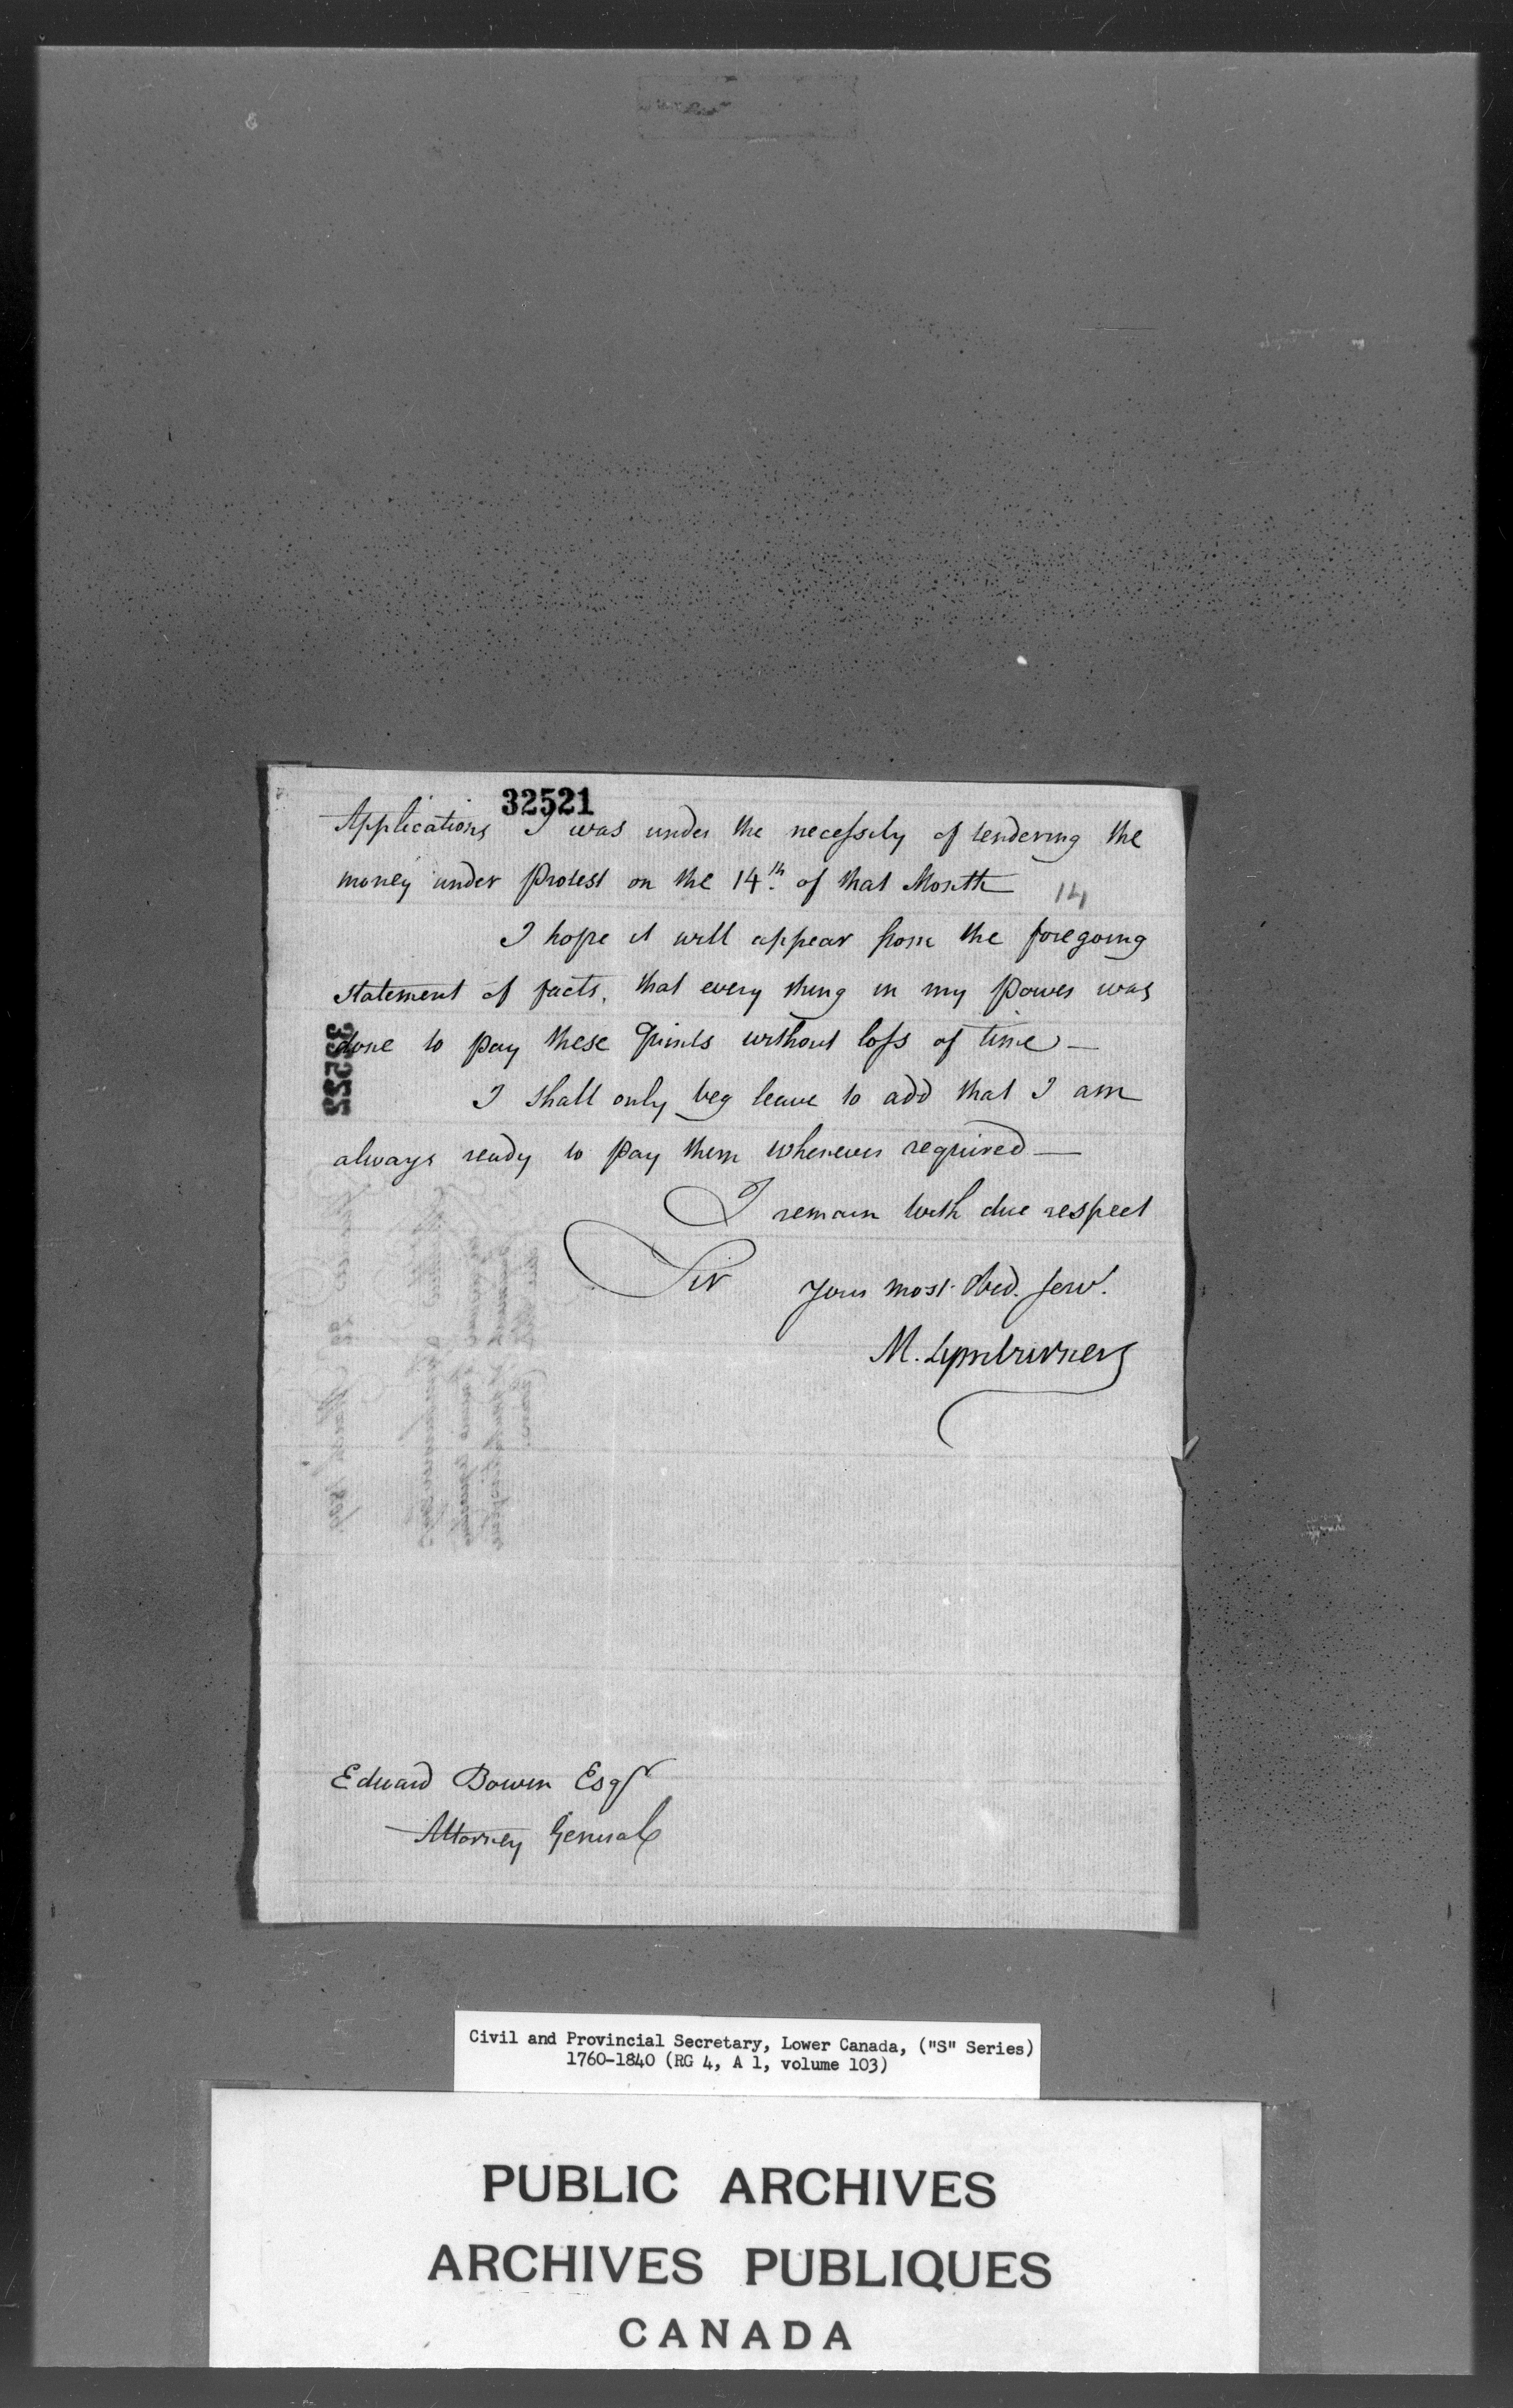 32521
Applications I was under the necessity of tendering the
money under Protest on the 14th of that Month
14
I hope it will appear from the foregoing
statement of facts, that every thing in my Power was
done to pay these Quints without loss of time —
32522
I shall only beg leave to add that I am
always ready to pay them whenever required —
I remain with due respect
Sir your most Obed. Serv.t
M. Lymburner
Edward Bowen Esqr
Attorney General
Civil and Provincial Secretary, Lower Canada, ("S" Series)
1760-1840 (RG 4, A 1, volume 103)
PUBLIC ARCHIVES
ARCHIVES PUBLIQUES
CANADA